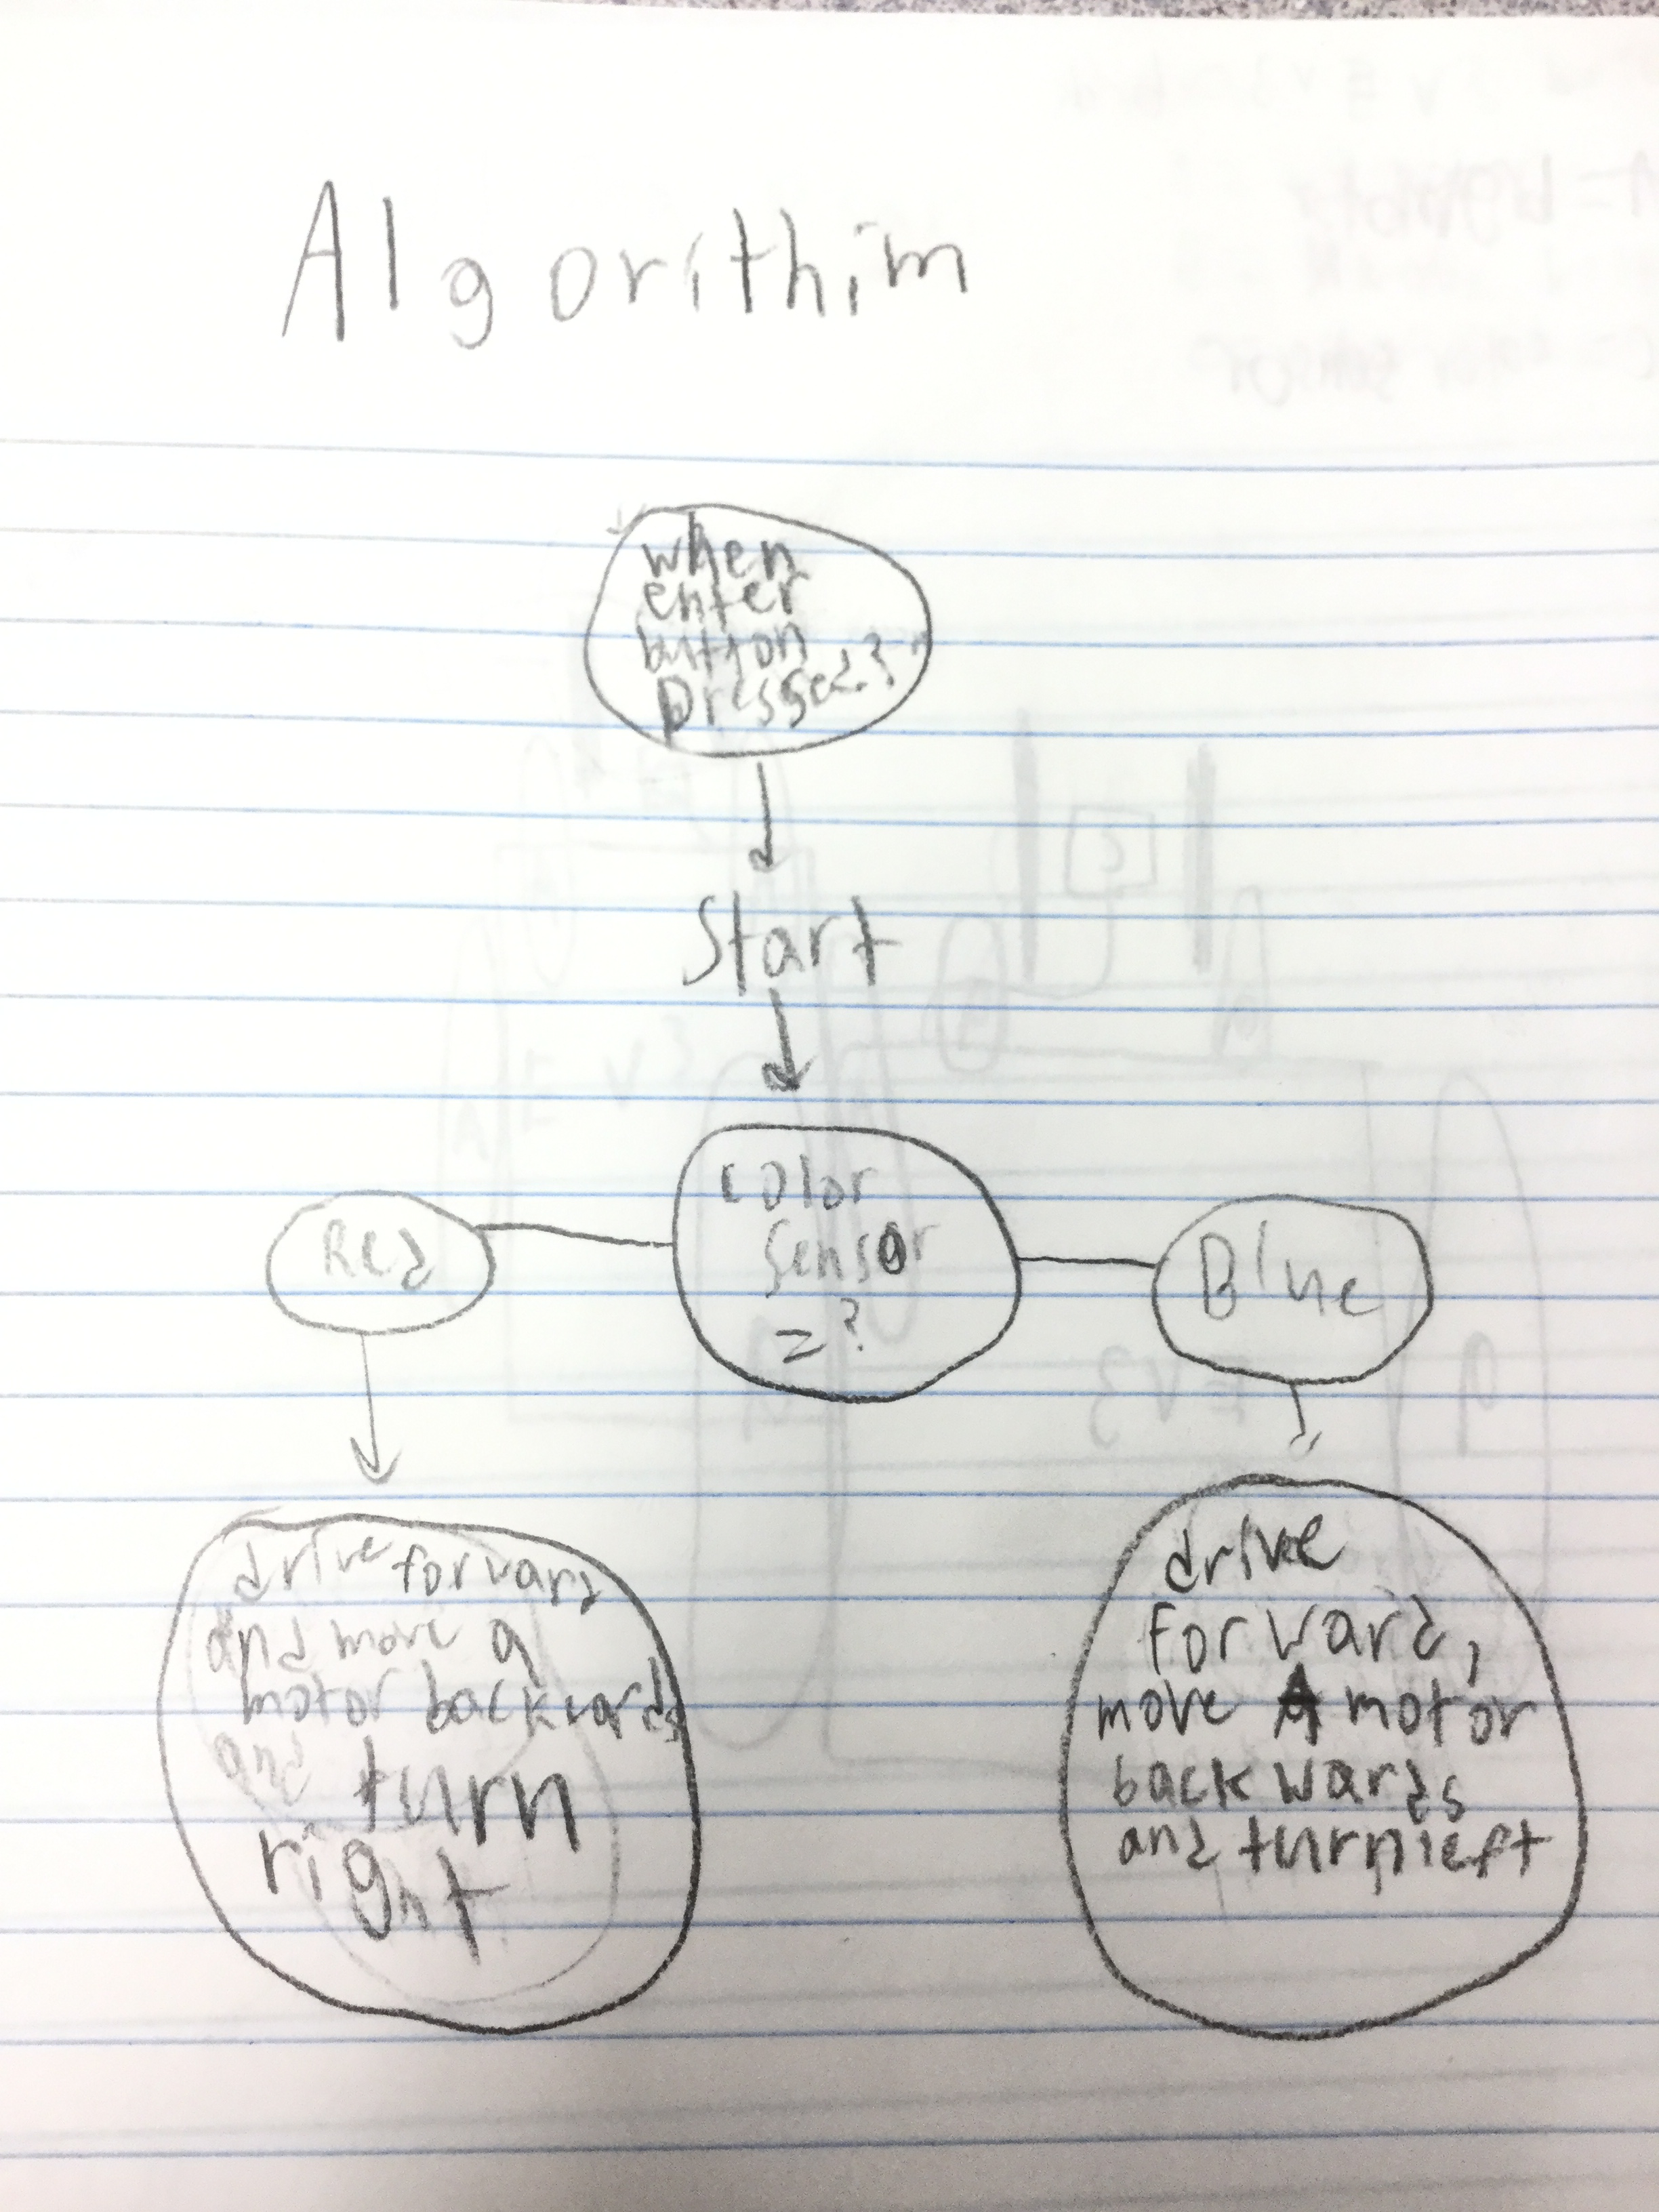 Algorithim
when
enter
button
pressed?
Start
color
sensor
=?
Red
Blue
drive forward
and move a
motor backwards
and turn
right
drive
forward,
move A motor
backwards
and turn left